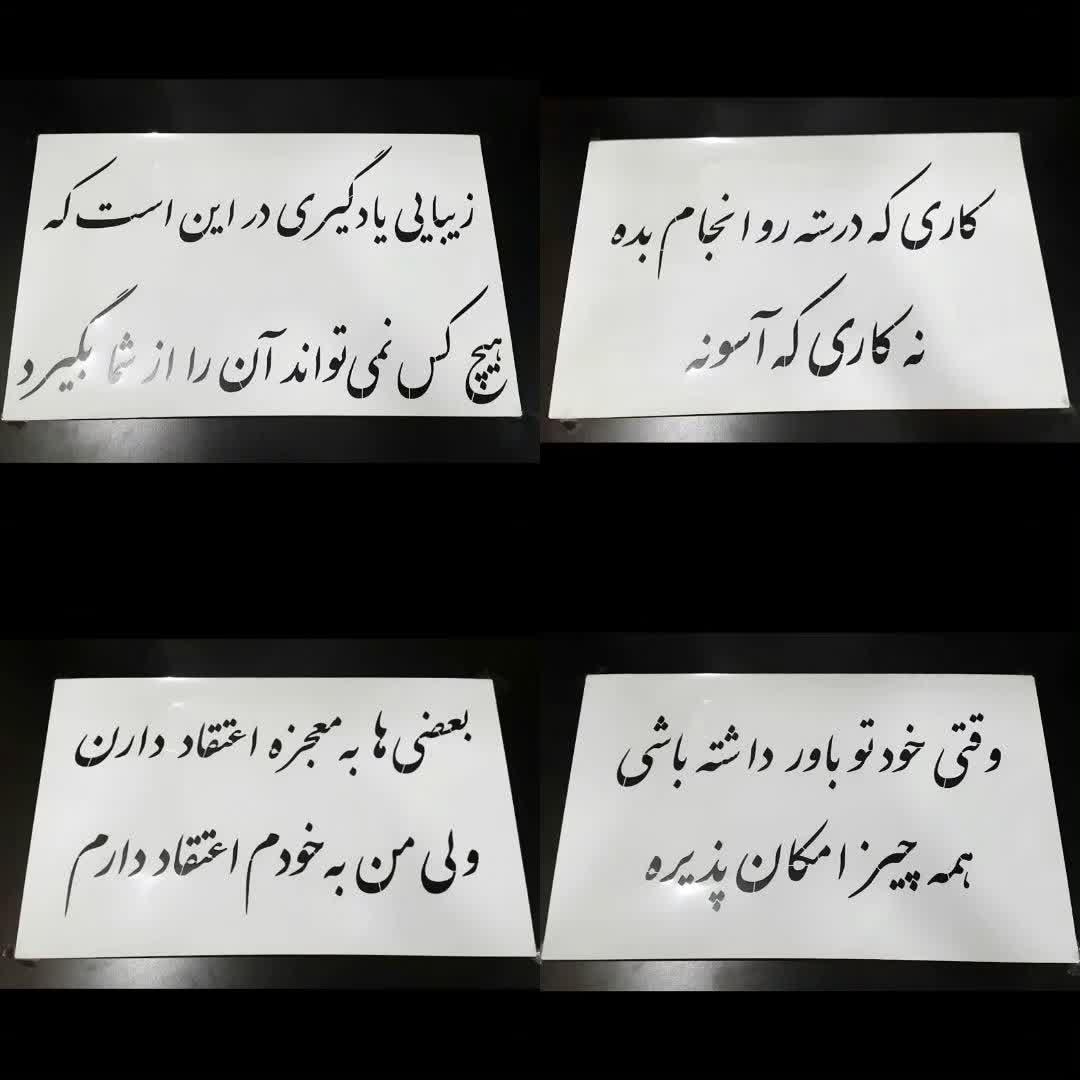 زیبایی یادگیری در این است که
هیچ کس نمی‌تواند آن را از شما بگیرد
کاری که درسته رو انجام بده
نه کاری که آسونه
بعضی ها به معجزه اعتقاد دارن
ولی من به خودم اعتقاد دارم
وقتی خودتو باور داشته باشی
همه چیز امکان پذیره